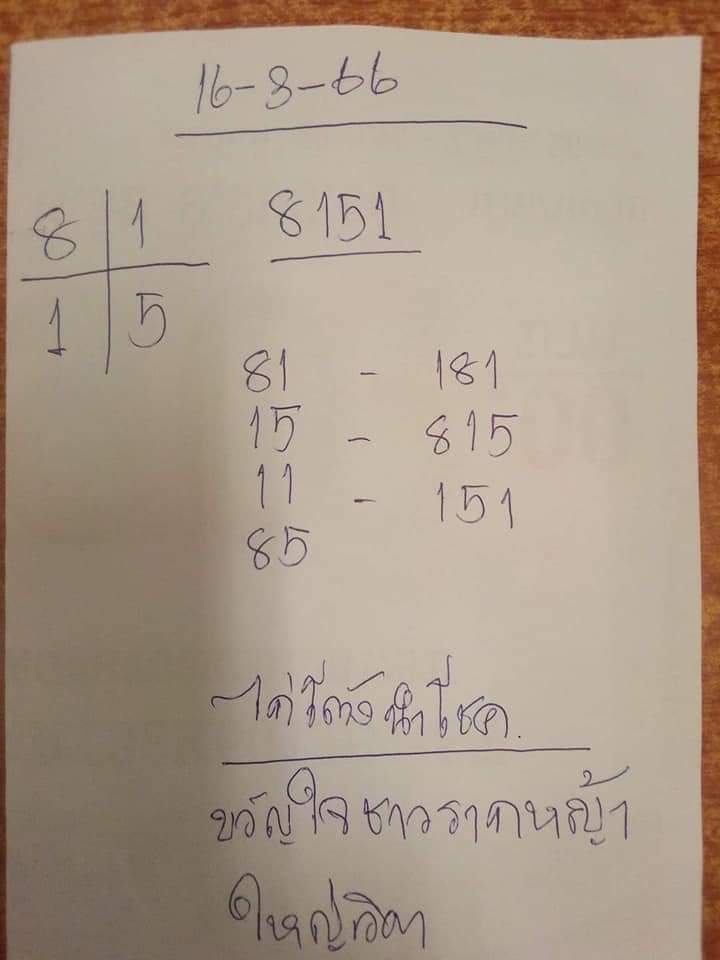 16-3-66
8 1 8151
1 5
81 - 181
15 - 815
11 - 151
85
นำโชค.
ขวัญใจชาวรากหญ้า
ใหญ่